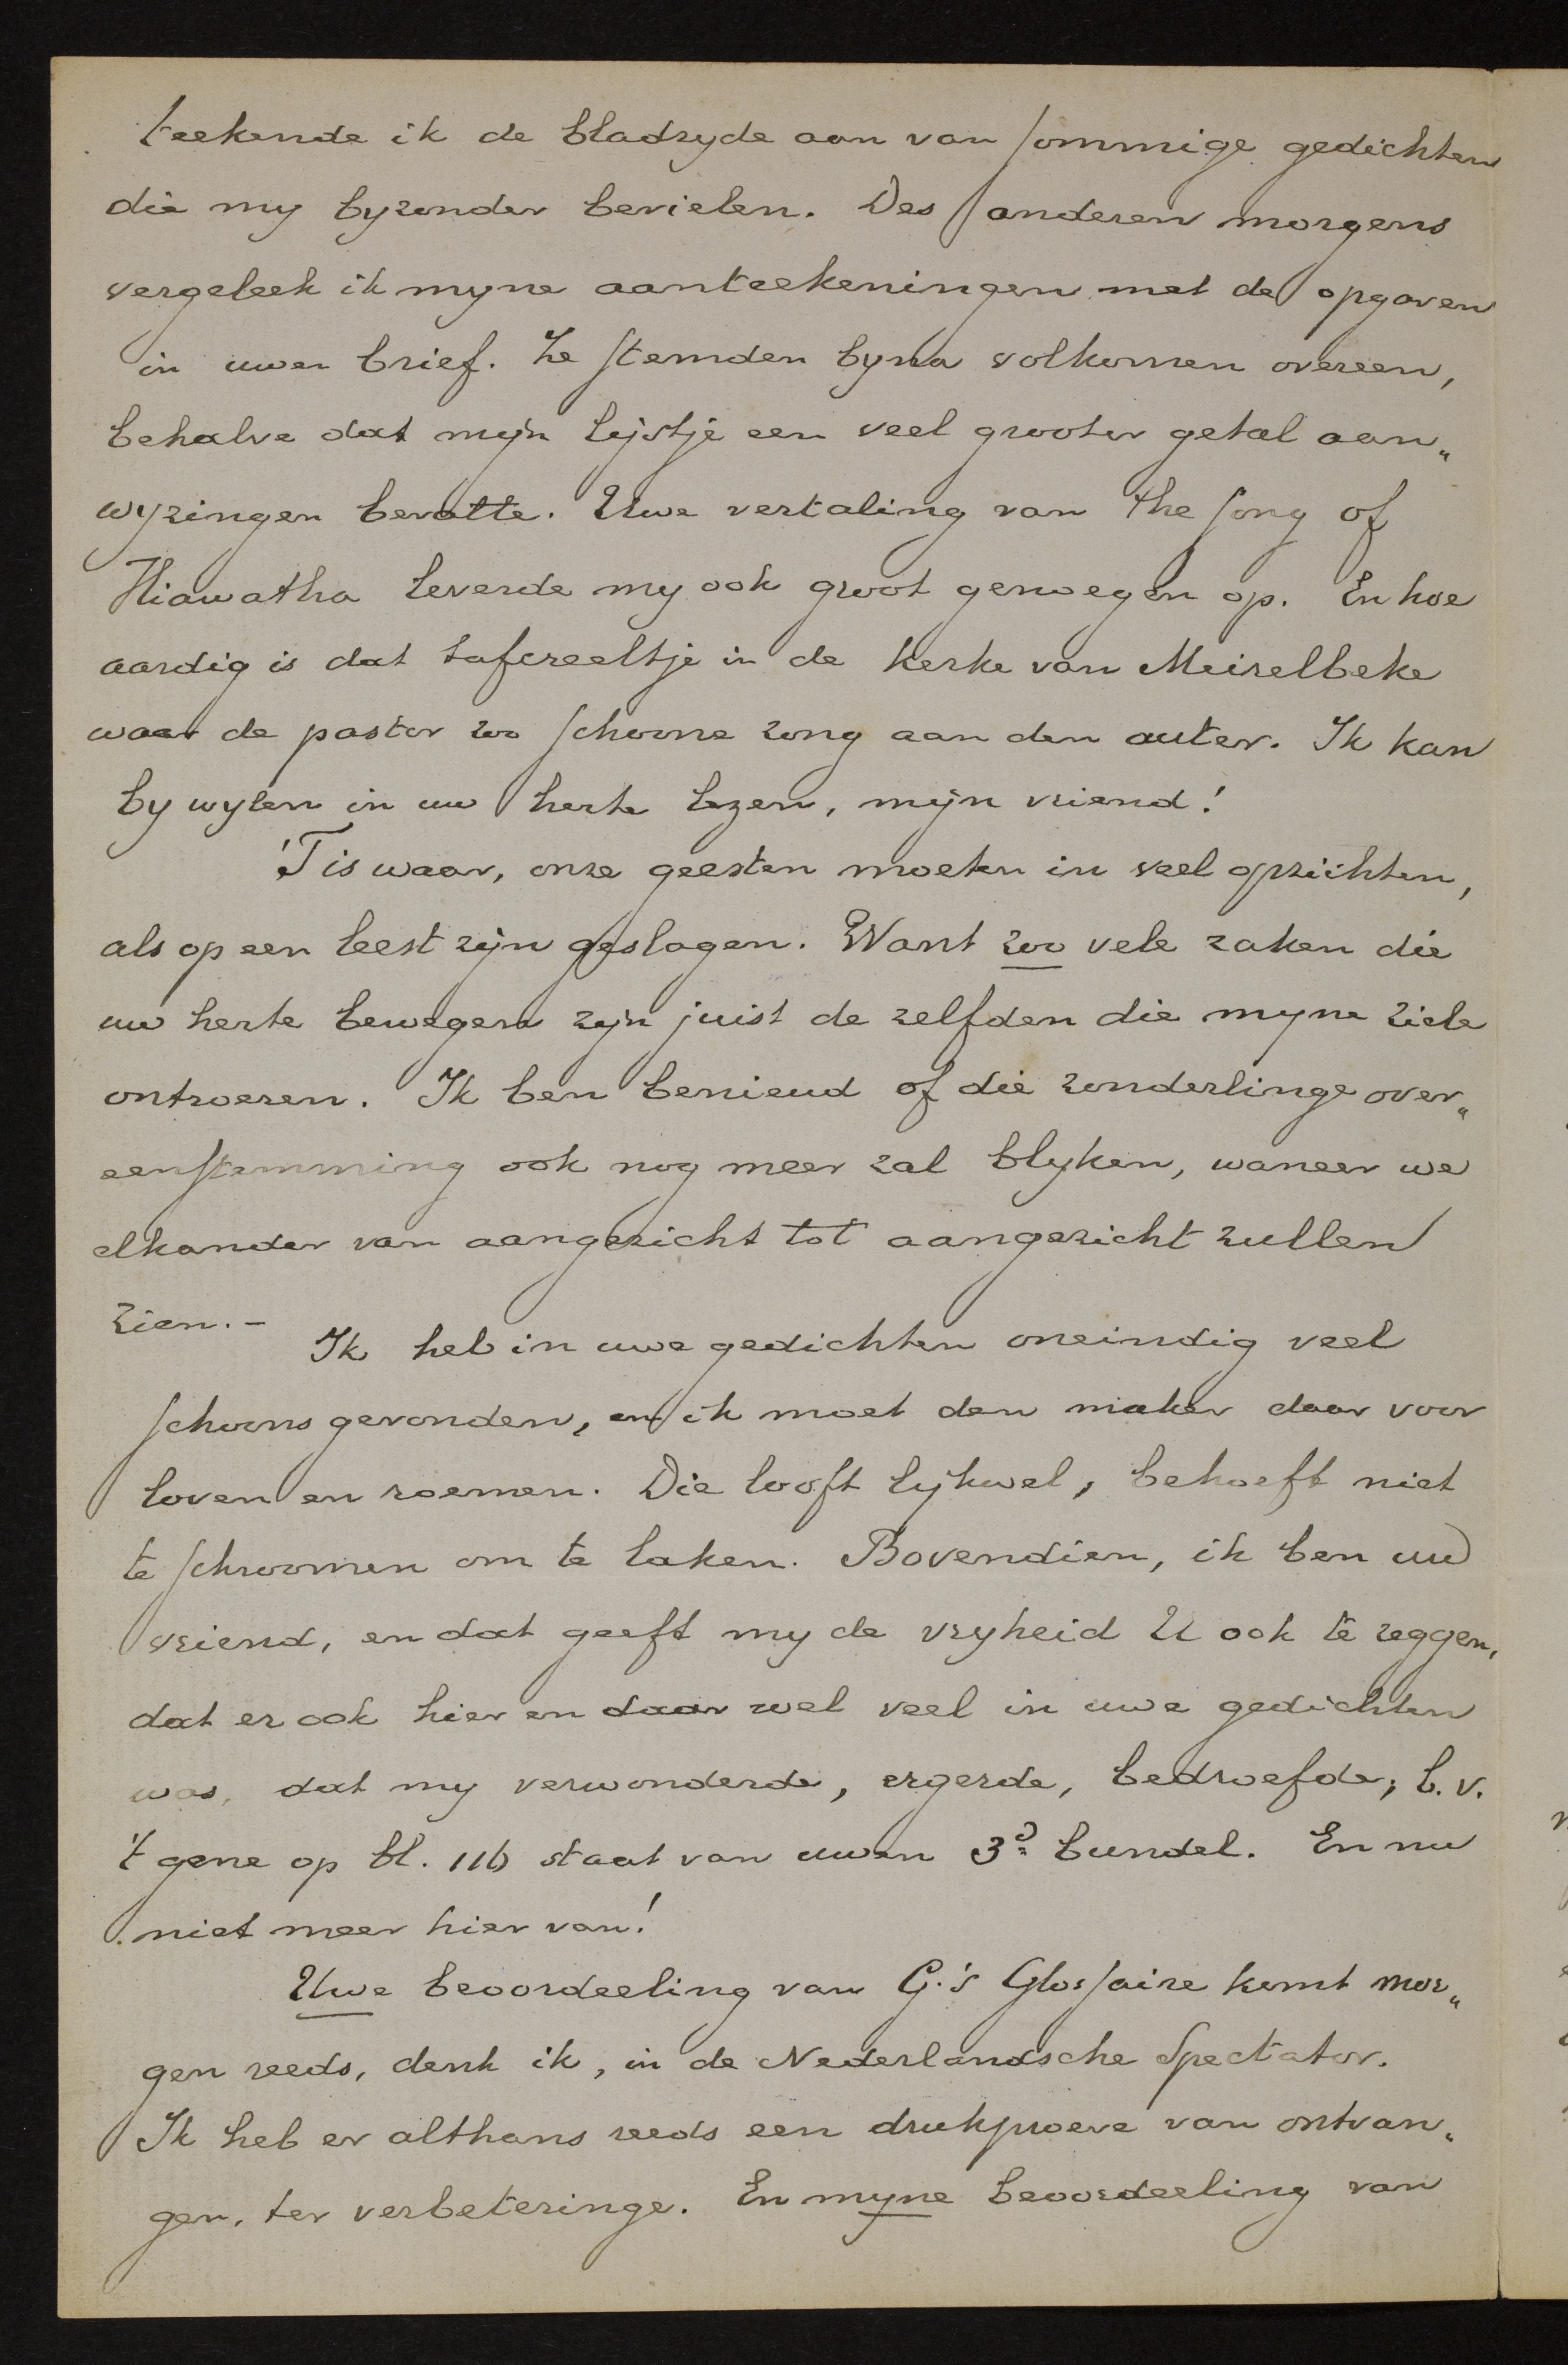 teekende ik de bladzyde aan van sommige gedichten
die my byzonder bevielen. Des anderen morgens
vergeleek ik myne aanteekeningen met de opgaven
in uwen brief. Ze stemden byna volkomen overeen,
behalve dat mijn lijstje een veel grooter getal aan„
wyzingen bevatte. Uwe vertaling van the song of
Hiawatha leverde my ook groot genoegen op. En hoe
aardig is dat tafereeltje in de kerke van Meizelbeke
waar de pastor zoo schoone zong aan den auter. Ik kan
by wylen in uw herte lezen, mijn vriend!
'T is waar, onze geesten moeten in veel opzichten,
als op een leest zijn geslagen. Want zoo vele zaken die
uw herte bewegen zijn juist de zelfden die myne ziele
ontroeren. Ik ben benieud of die zonderlinge over„
eenstemming ook nog meer zal blyken, waneer we
elkander van aangezicht tot aangezicht zullen
zien. –
Ik heb in uwe gedichten oneindig veel
schoons gevonden, en ik moet den maker daar voor
loven en roemen. Die looft lijkwel, behoeft niet
te schroomen om te laken. Bovendien, ik ben uw
vriend, en dat geeft my de vryheid U ook te zeggen,
dat er ook hier en daar wel veel in uwe gedichten
was, dat my verwonderde, ergerde, bedroefde; b.v.
't gene op bl. 116 staat van uwen 3d bundel. En nu
niet meer hier van!
Uwe beoordeeling van G.'s Glossaire komt mor„
gen reeds, denk ik, in de Nederlandsche Spectator.
Ik heb er althans reeds een drukproeve van ontvan„
gen, ter verbeteringe. En myne beoordeeling van